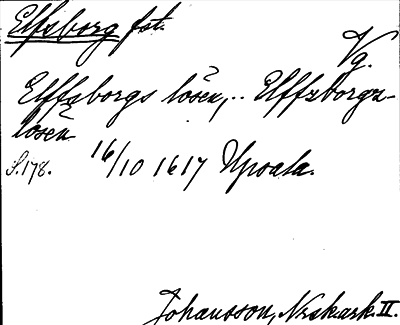 Elfsborg fst.
Vg.
Elffzborgs lösen, .. Elffzborgz-
lösen
S. 178. 16/10 1617 Upsala.
Johansson, Nrskark. II.